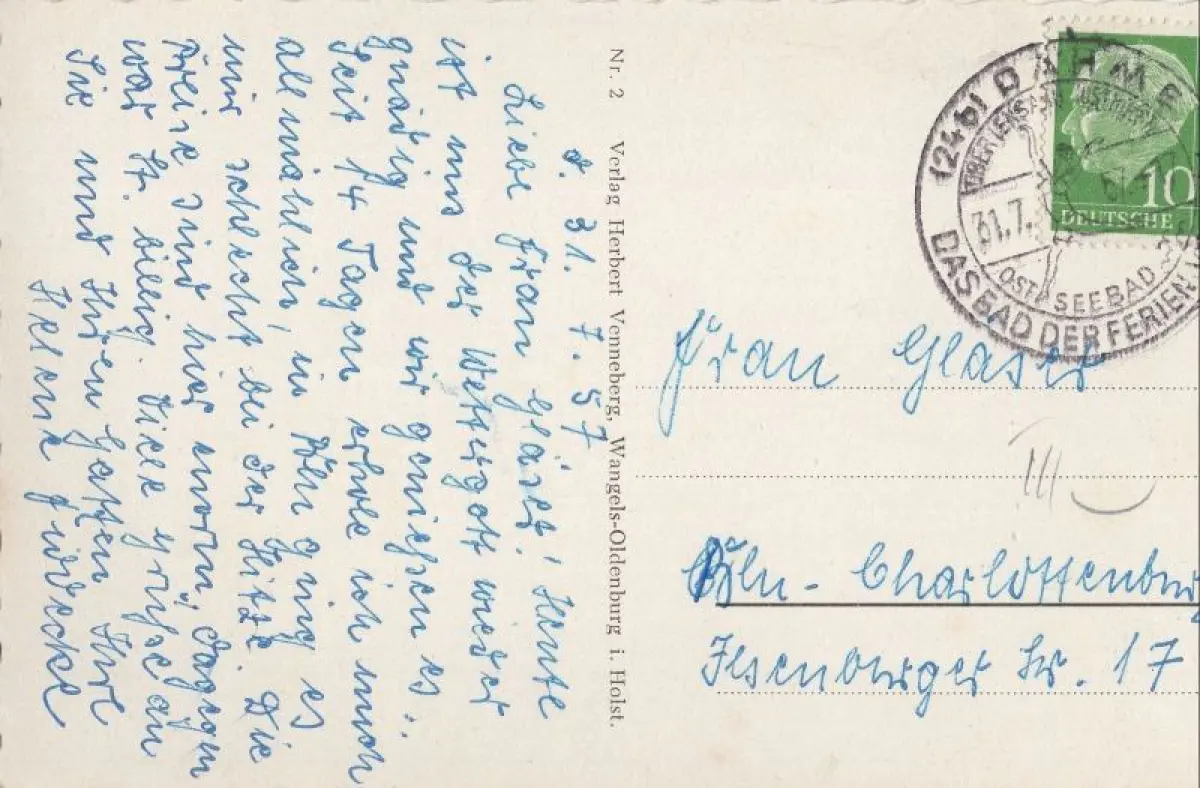 d. 31. 7. 57
Liebe Frau Gläser! Heute
ist uns der Wettergott wieder
gnädig und wir genießen es.
Seit 14 Tagen erhole ich mich
allmählich, in Bln ging es
mir schlecht bei der Hitze. Die
Preise sind hier enorm, dagegen
war It. billig. Viele Grüße an
Sie und Ihren Gatten Ihre
Helene
Nr. 2 Verlag Herbert Venneberg, Wangels-Oldenburg i. Holst.
(24b) DAHME
ÜBER LENSAHN
31.7.
OSTSEEBAD
DAS BAD DER FERIEN
10
DEUTSCHE
Frau Gläser
III
Bln- Charlottenburg
Ilsenburger Str. 17